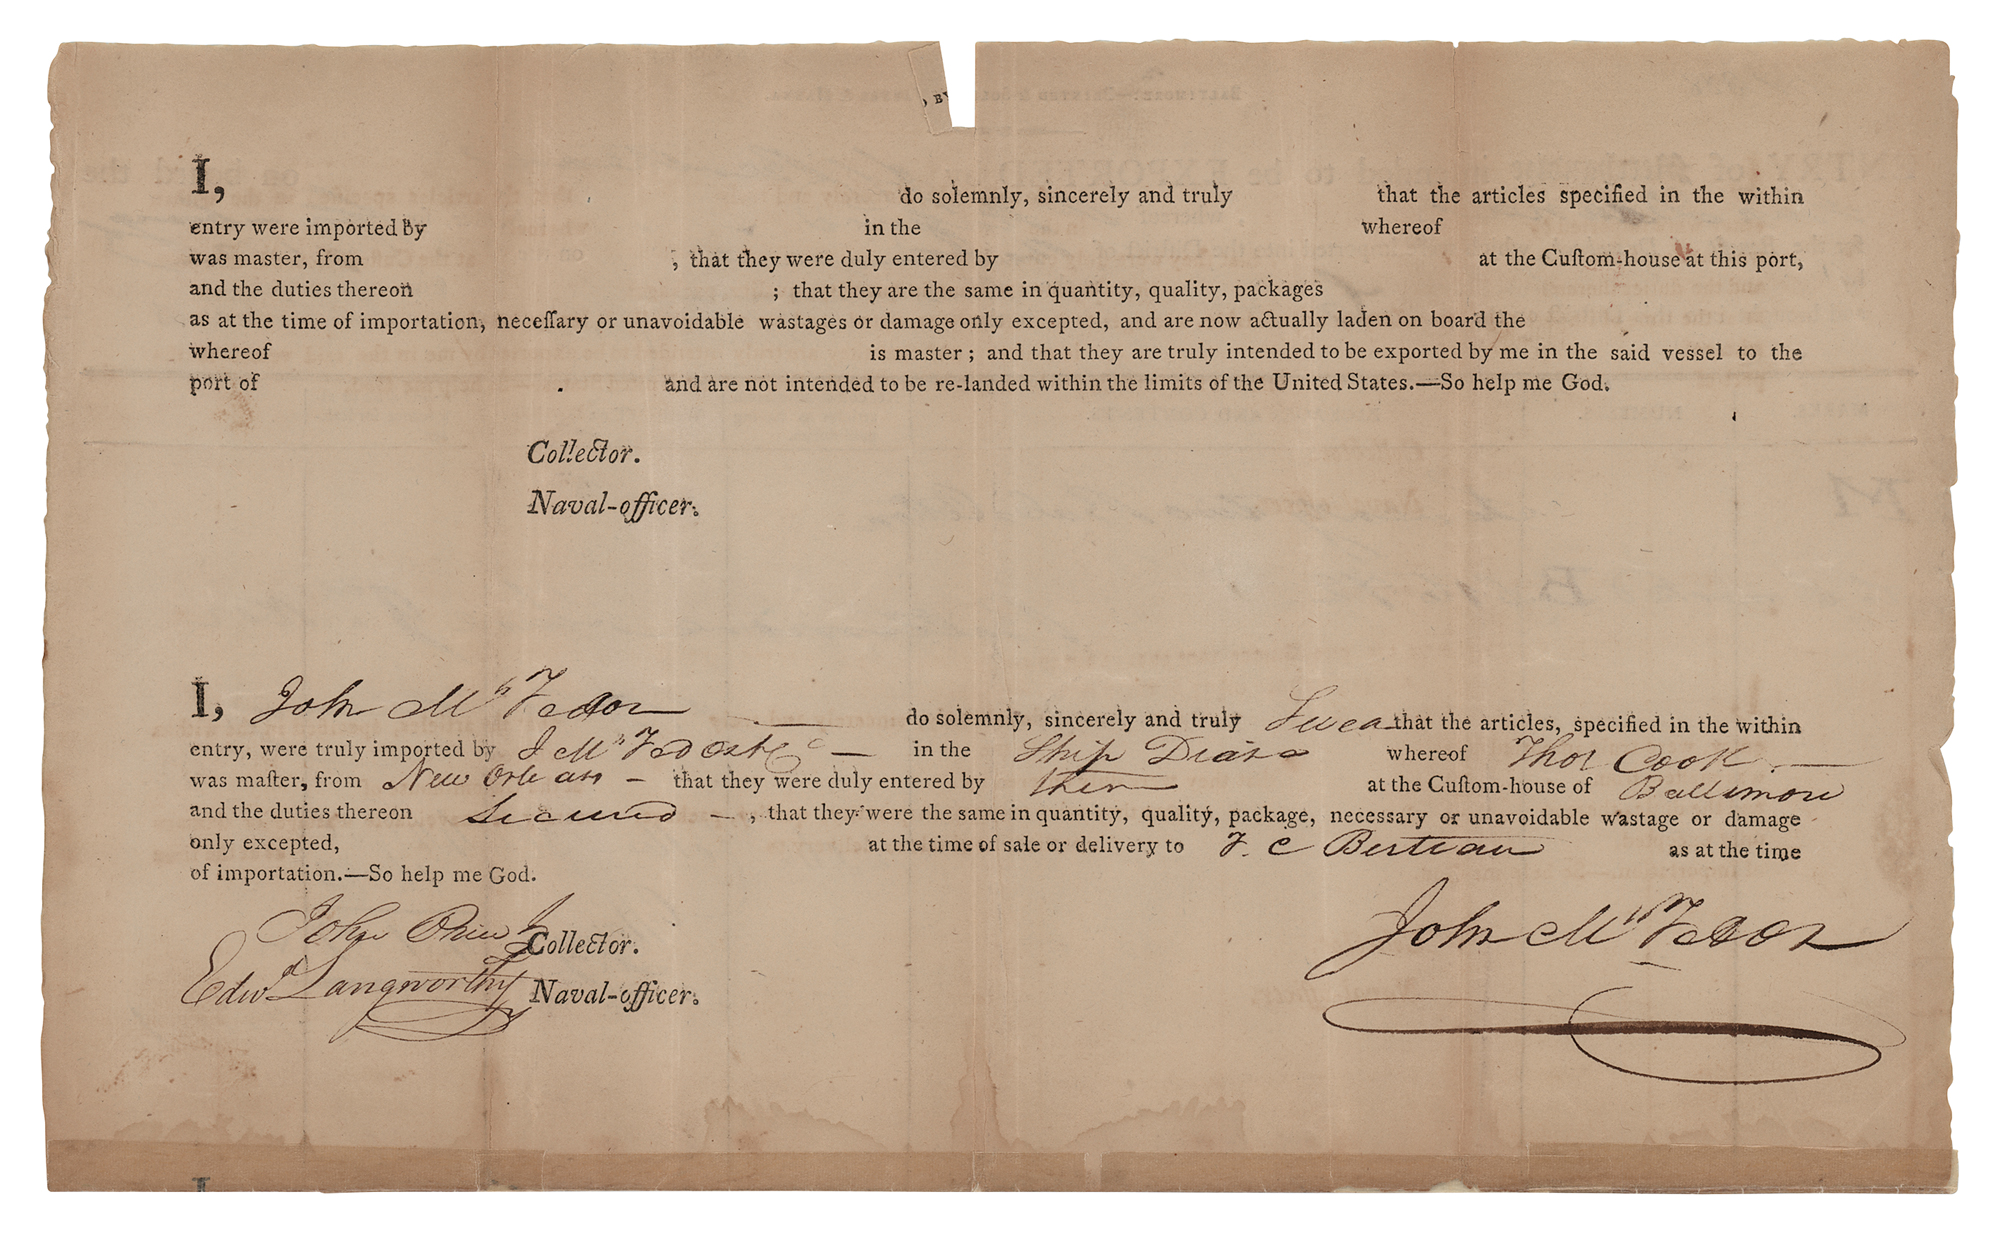 D BY
I, do solemnly, sincerely and truly that the articles specified in the within
entry were imported by in the whereof
was master, from , that they were duly entered by at the Cuſtom-house at this port,
and the duties thereon ; that they are the same in quantity, quality, packages
as at the time of importation, neceſſary or unavoidable wastages or damage only excepted, and are now actually laden on board the
whereof is master; and that they are truly intended to be exported by me in the said vessel to the
port of and are not intended to be re-landed within the limits of the United States.—So help me God.
Collector.
Naval-officer.
I, John McFadon do solemnly, sincerely and truly Swear that the articles, specified in the within
entry, were truly imported by J McFadon & Co in the Ship whereof Thos Cook
was maſter, from New Orleans that they were duly entered by them at the Cuſtom-house of Baltimore
and the duties thereon Secured , that they were the same in quantity, quality, package, necessary or unavoidable wastage or damage
only excepted, at the time of sale or delivery to F. C as at the time
of importation.—So help me God.
John Collector.
Edwd Langworthy Naval-officer.
John McFadon
I